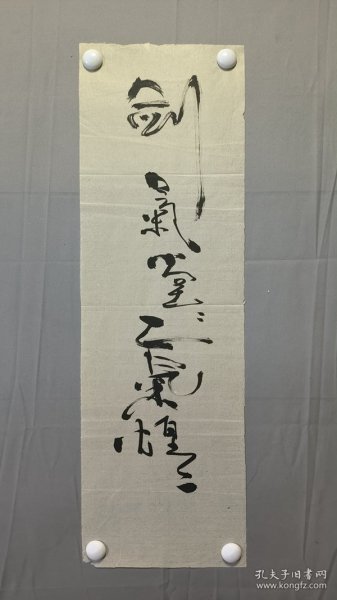 剑氣堂〻正氣煌〻
孔夫子旧书网
www.kongfz.com